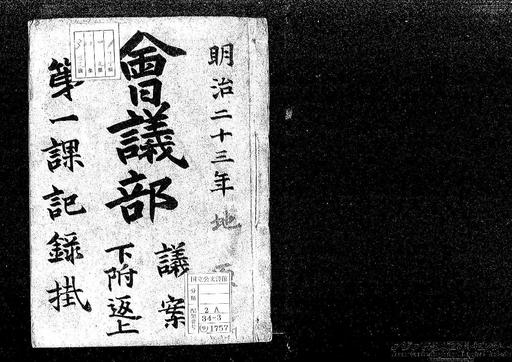 明治二十三年 地
會議部
議案
下附返上
第一課記錄掛
国立公文書館
分類
配架番号
2 A
34-3
1757